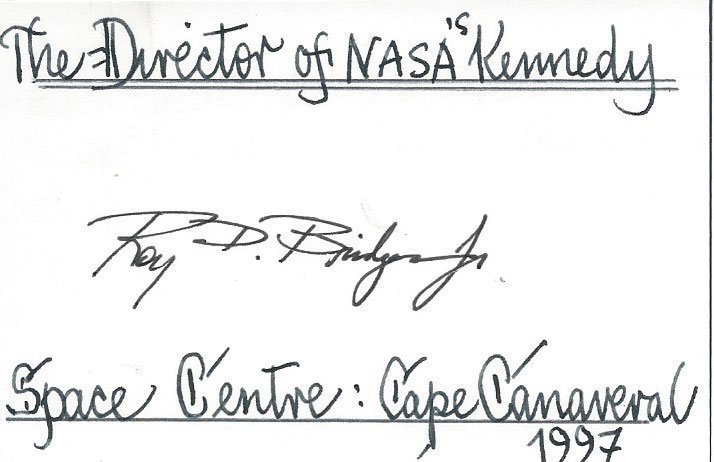 The Director of NASA's Kennedy
Roy D. Bridges Jr
Space Centre: Cape Canaveral
1997